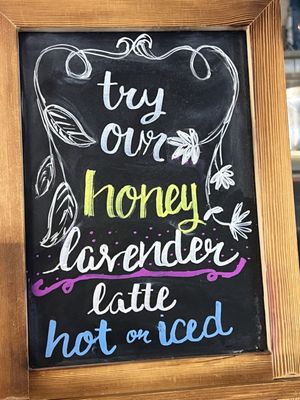 try
our
honey
lavender
latte
hot or iced